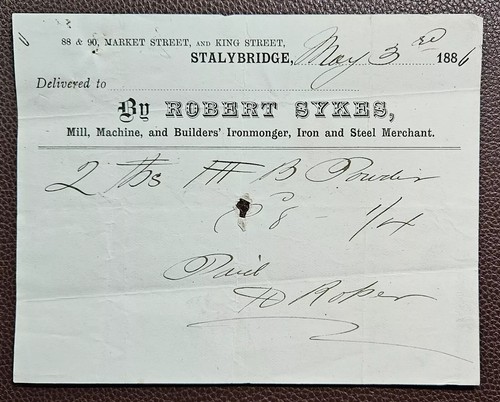 88 & 90, MARKET STREET, AND KING STREET,
STALYBRIDGE, May 3rd 1886
Delivered to
By ROBERT SYKES,
Mill, Machine, and Builders' Ironmonger, Iron and Steel Merchant.
2 lbs B Powder
8 - 1/4
Paid
Roper